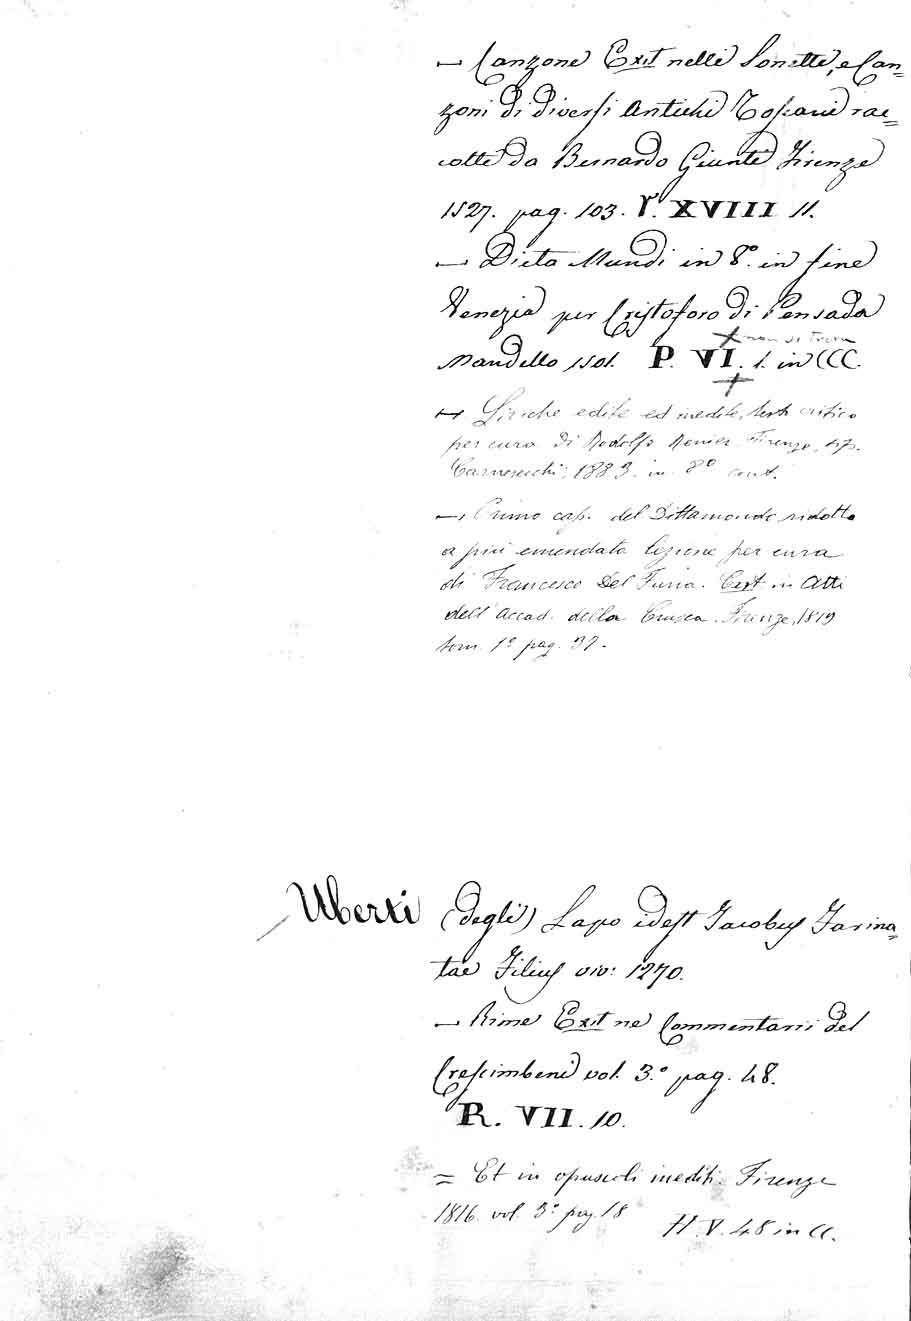 — Canzone Exit nelli Sonetti, e Can=
zoni di diversi Antichi Toscani rac=
colte da Bernardo Giunti Firenze
1527. pag. 103. V. XVIII 11.
— Dicta Mundi in 8.° in fine
Venezia per Cristoforo di Pensada
non si trova
Mandello 1501. P. VI. 1. in CCC.
— Liriche edite ed inedite, testo critico
per cura di Rodolfo Renier. Firenze, tip.
Carnesecchi, 1883. in 8°
— Primo cap. del Dittamondo ridotto
a più emendata lezione per cura
di Francesco Del Furia. Exit in Atti
dell'Accad. della Crusca. Firenze, 1819
tom. 1° pag. 37.
Uberti (degli) Lapo idest Jacobus Farina=
tae Filius viv: 1270.
— Rime Exit ne Commentarii del
Crescimbeni vol. 3.° pag. 48.
R. VII. 10.
= Et in opuscoli inediti. Firenze
1816. vol. 3° pag. 18
H. V. 48 in CC.